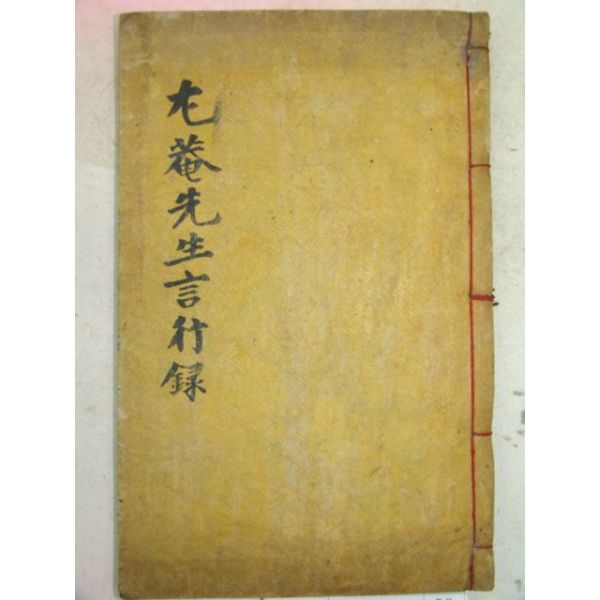 尤菴先生言行録